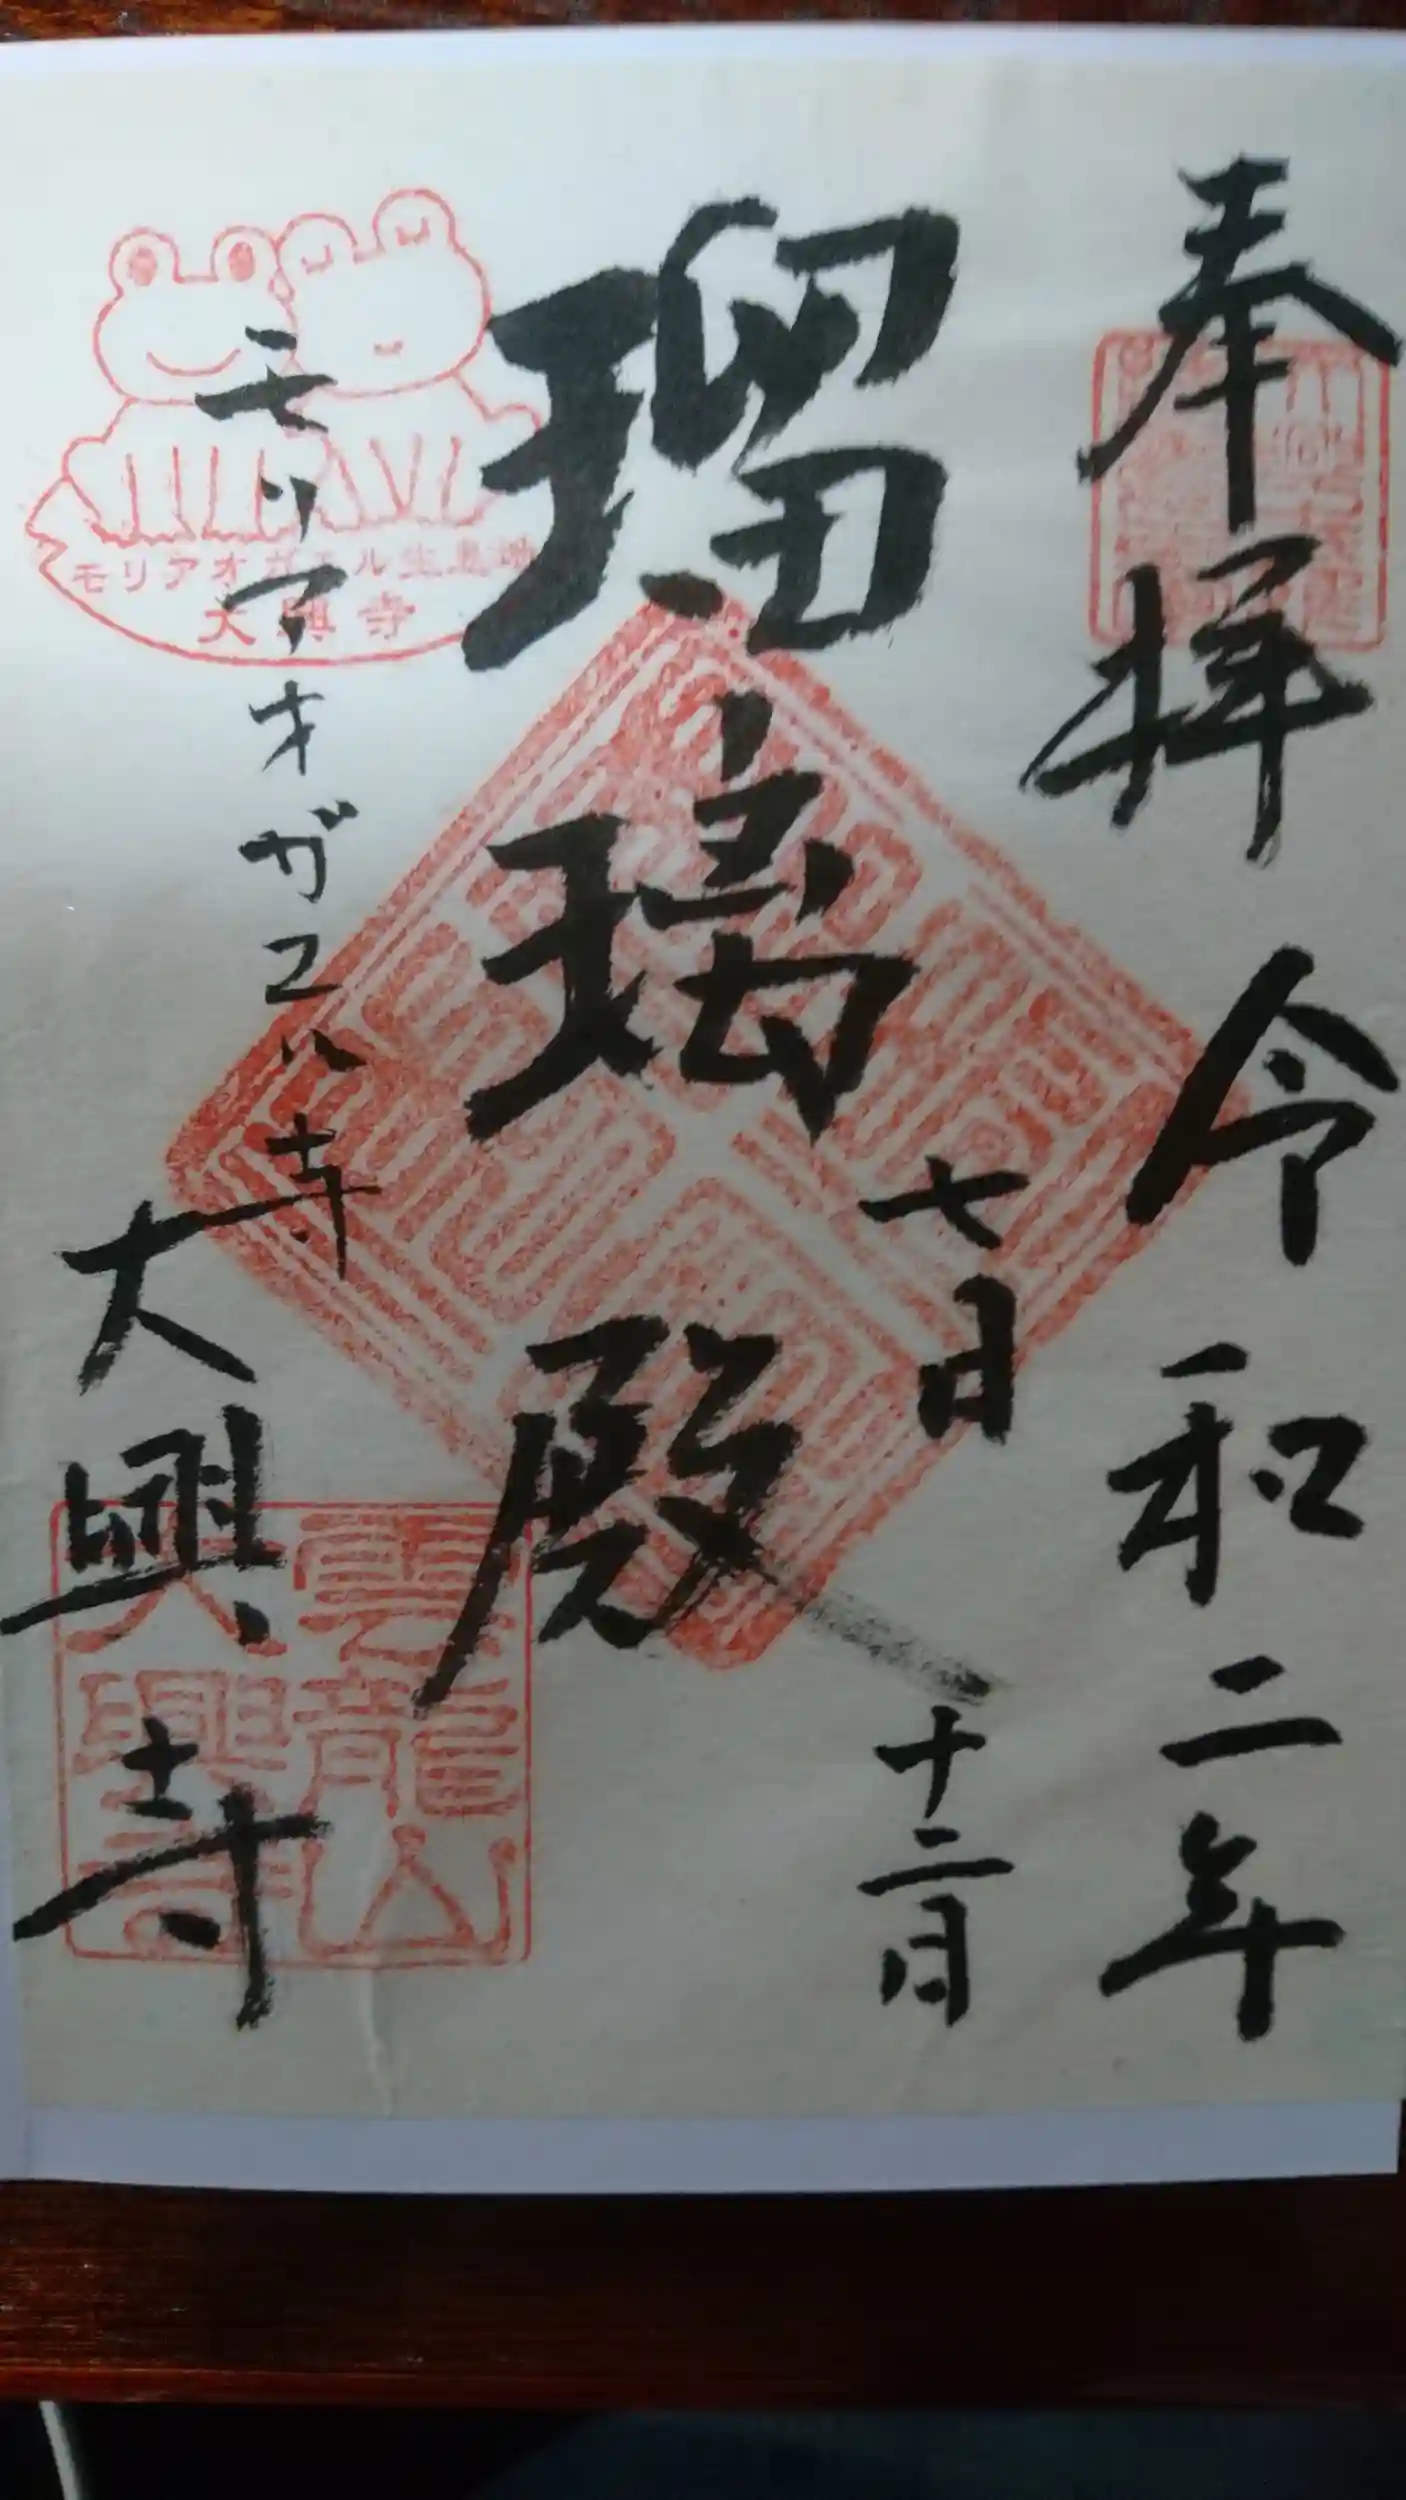 奉拝 令和二年
十二月
七日
瑠璃殿
モリアオガエル寺
大興寺
モリアオガエル生息地
大興寺
雲龍山
大興寺